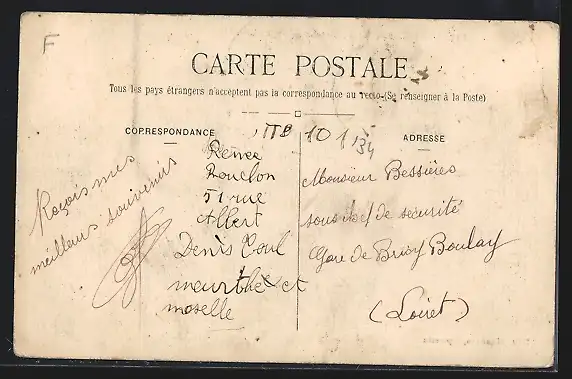 F
CARTE POSTALE
Tous les pays étrangers n'acceptent pas la correspondance au recto-(Se renseigner à la Poste)
CORRESPONDANCE
ADRESSE
10 1 134
Reçois mes
meilleurs souvenirs
Renée
51 rue
Albert
Denis Toul
meurthe et
moselle
Monsieur Bessières
sous chef de securité
Gare de Bricy Boulay
(Loiret)